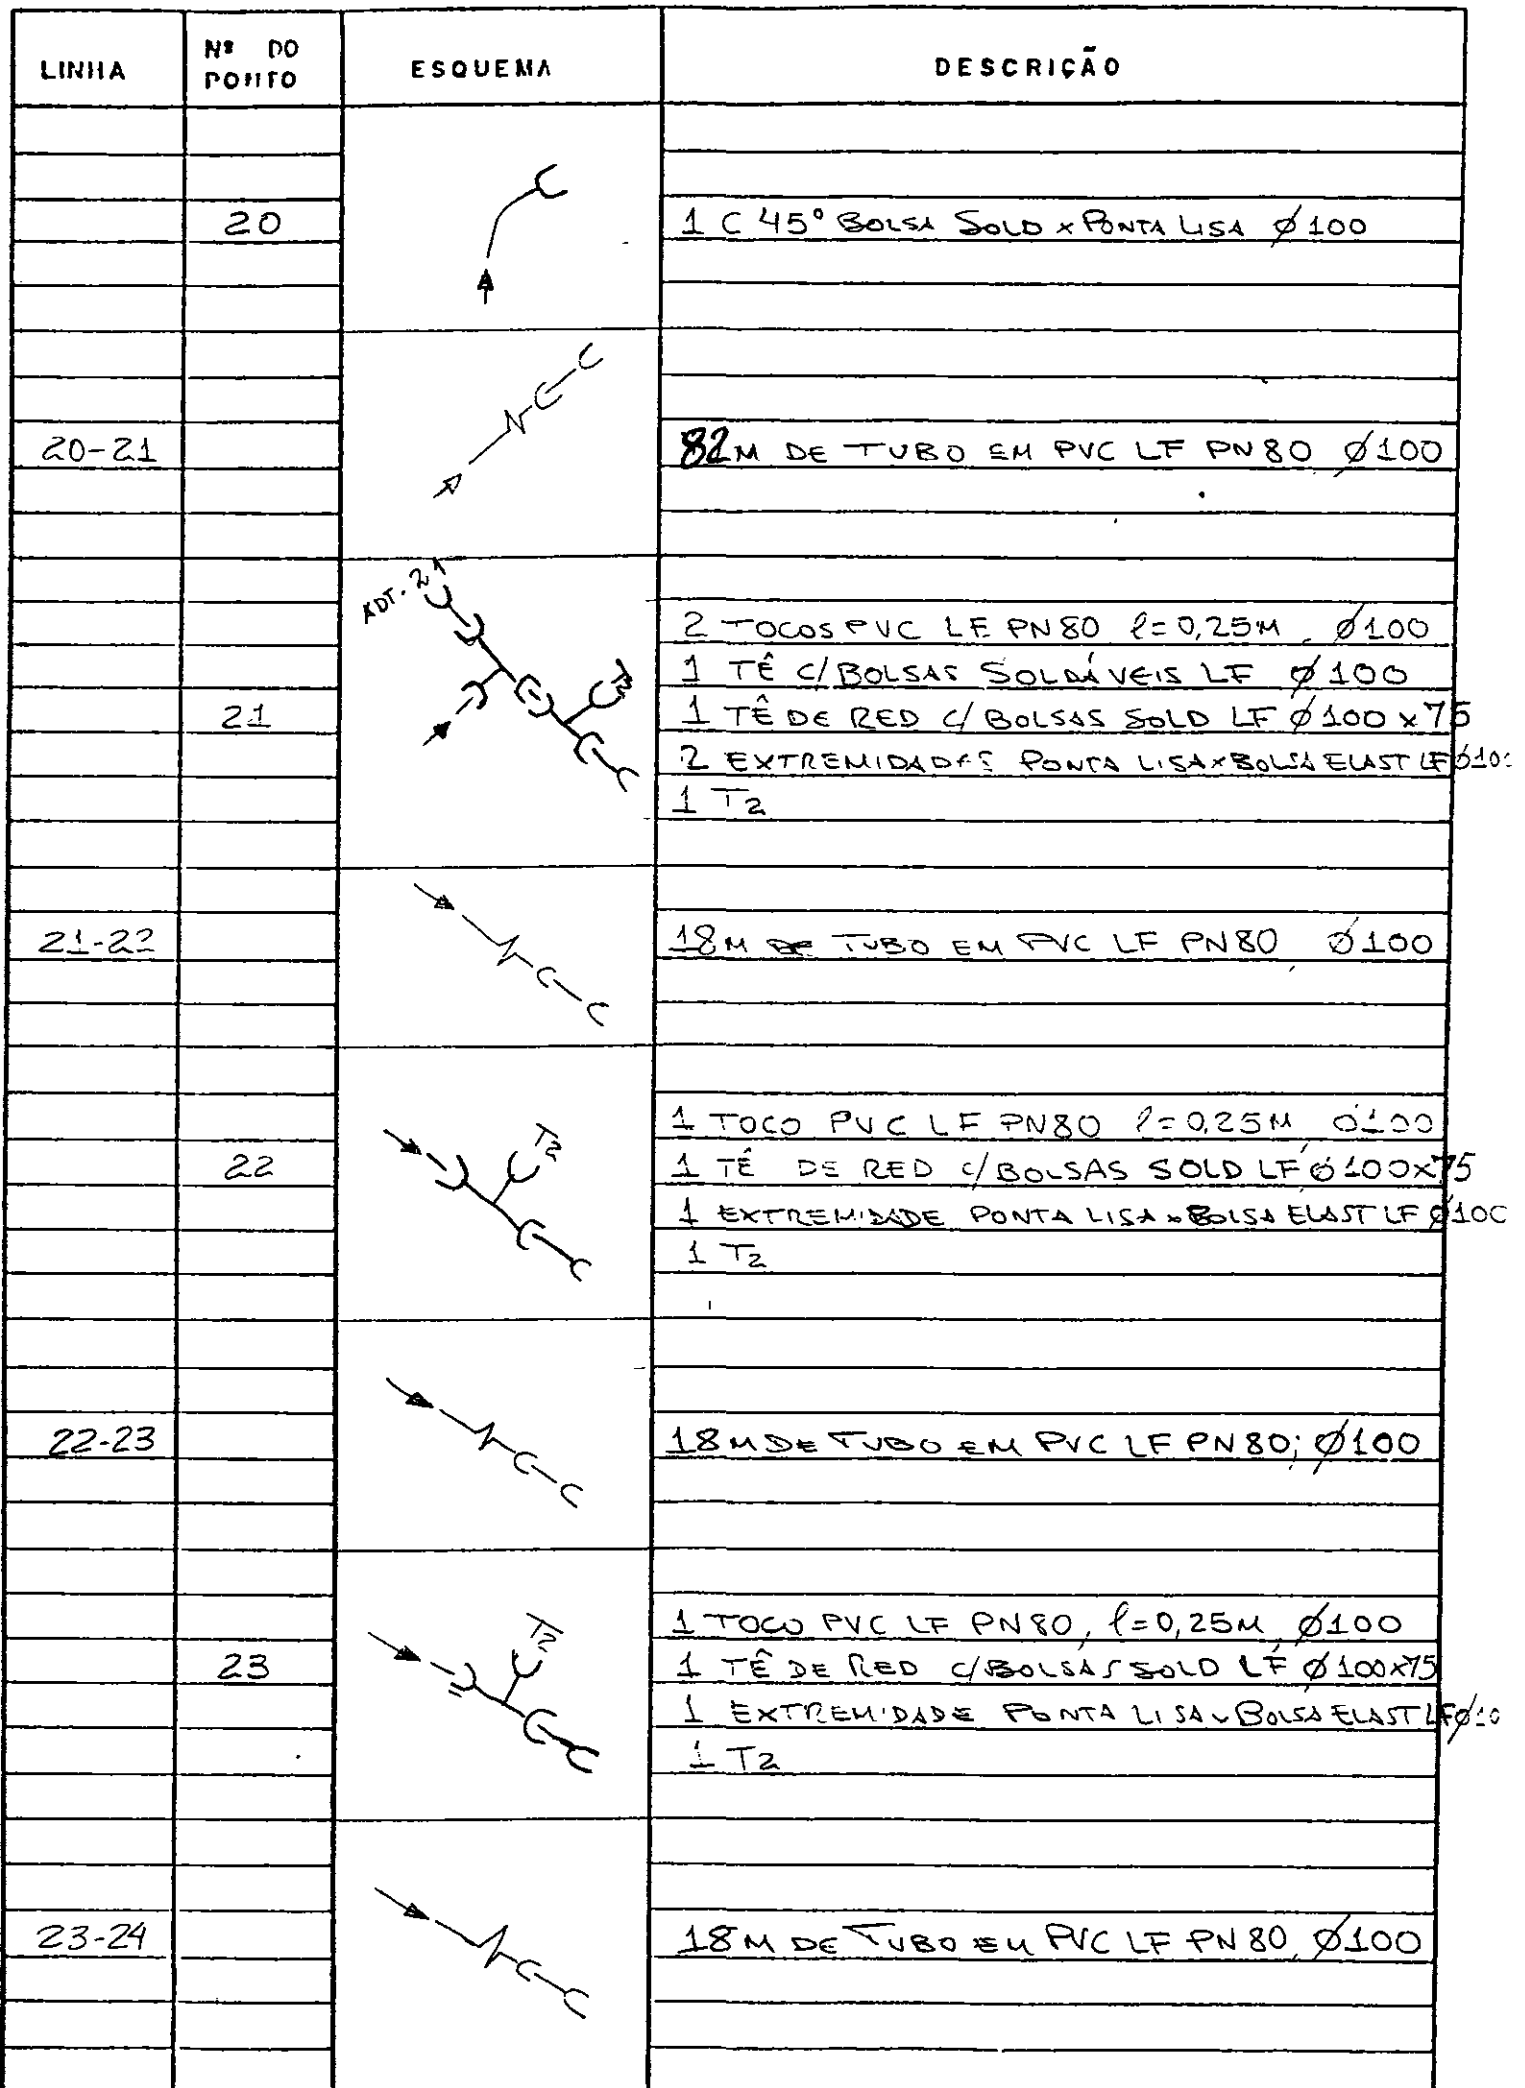 LINHA Nº DO PONTO ESQUEMA DESCRIÇÃO
20 1 C 45° BOLSA SOLD x PONTA LISA Ø 100
20-21 82M DE TUBO EM PVC LF PN 80 Ø100
ADT. 21
2 TOCOS PVC LF PN 80 l=0,25M Ø100
1 TÊ C/ BOLSAS SOLDÁVEIS LF Ø 100
21 1 TÊ DE RED C/ BOLSAS SOLD LF Ø 100 x 75
2 EXTREMIDADES PONTA LISA x BOLSA ELAST LF Ø100
1 T2
21-22 18 M DE TUBO EM PVC LF PN 80 Ø100
T2
1 TOCO PVC LF PN80 l=0,25M Ø100
22 1 TÊ DE RED C/ BOLSAS SOLD LF Ø 100x75
1 EXTREMIDADE PONTA LISA x BOLSA ELAST LF Ø100
1 T2
22-23 18 M DE TUBO EM PVC LF PN 80; Ø100
T2
1 TOCO PVC LF PN 80, l=0,25M, Ø100
23 1 TÊ DE RED C/ BOLSAS SOLD LF Ø 100x75
1 EXTREMIDADE PONTA LISA x BOLSA ELAST LF Ø10
1 T2
23-24 18 M DE TUBO EM PVC LF PN 80, Ø100